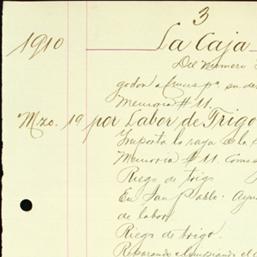 3
1910 La Caja
Del Numero
godon
Memoria # 11.
Mzo. 19 por Labor de Trigo
Importa la raya de la
Memoria # 11
Riego de trigo
En San Pablo.
de labor
Riego de trigo.
Reparando